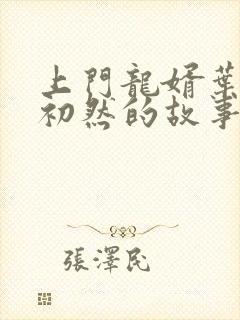 上門龍婿葉
初然的故事
張澤民